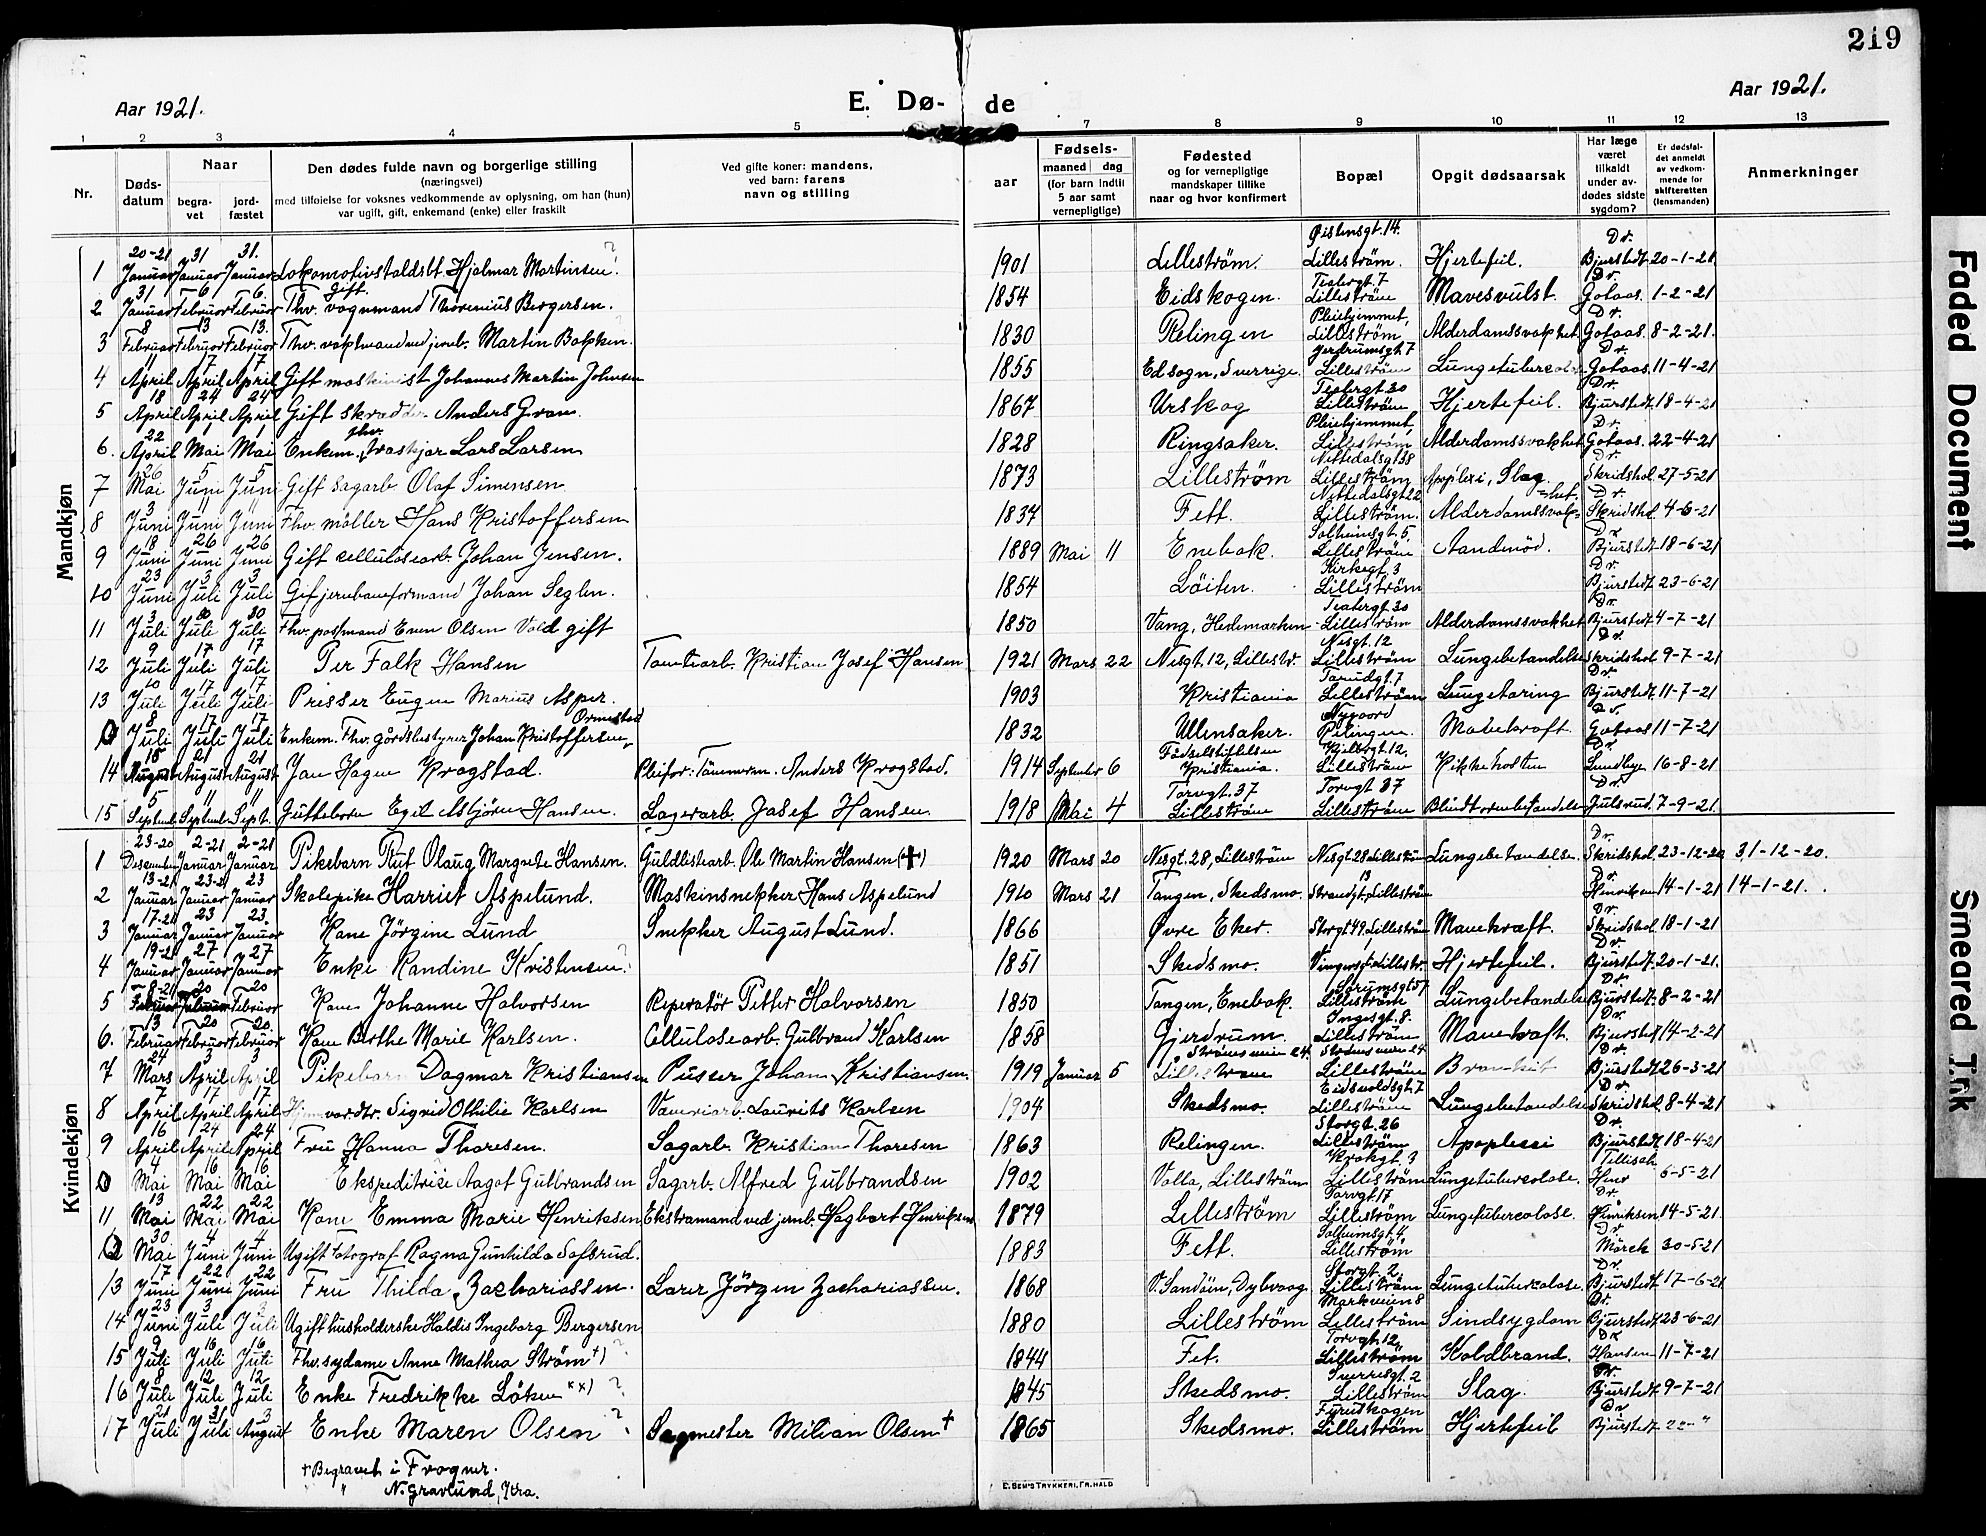 219
Aar 1921.
E. Dø-
de
Aar 1921.
1 2 3 4 5 7 8 9 10 11 12 13
Nr.
Døds-
datum
Naar
begra-
vet
jord-
fæstet
Den dødes fulde navn og borgerlige stilling
(næringsvei)
med tilføielse for voksnes vedkommende av oplysning, om han (hun)
var ugift, gift, enkemand (enke) eller fraskilt
Ved gifte koner: mandens,
ved barn: farens
navn og stilling
aar
Fødsels-
maaned dag
(for barn indtil
5 aar samt
vernepligtige)
Fødested
og for vernepligtige
mandskaper tillike
naar og hvor konfirmert
Bopæl
Opgit dødsaarsak
Har læge
været
tilkaldt
under av-
dødes sidste
sygdom?
Er dødsfal-
det anmeldt
av vedkom-
mende for
skifteretten
(lensmanden)
Anmerkninger
Mandkjøn
1 20-21 Januar 31 Januar 31. Januar Lokomotivstaldsbt. Hjalmar Martinsen? 1901 Lilleström. Øistensgt. 14. Lilleström. Hjertefeil. Dr. Bjurstedt 20-1-21
2 31 Januar 6 Februar 6. Februar Thv. gift vognmand Thorenius Bergersen. 1854 Eidskogen. Teatergt. 7 Lilleström Mavesvulst. Dr. Gotaas. 1-2-21
3 8 Februar 13 Februar 13. Februar Fhv. vaktmand ved jernb. Martin Bakken. 1830 Relingen Pleiehjemmet, Lilleström Alderdomssvakhet Dr. Gotaas. 8-2-21.
4 11 April 17 April 17 April Gift maskinist Johannes Martin Johnsen 1855 Ed sogn, Sverrige. Jerdrumsgt. 7 Lilleström Lungetuberculose Dr. Gotaas 11-4-21
5 18 April 24 April 24 April Gift skrædder Anders Gran. 1867 Urskog Teatergt. 20 Lilleström Hjertefeil. Dr. Bjurstedt. 18-4-21
6. 22 April 1 Mai 1 Mai Enkem. fhv. Lars Larsen 1828 Ringsaker. Pleiehjemmet, Lilleström Alderdomssvakhet Dr. Gotaas. 22-4-21
7 26 Mai 5 Juni 5 Juni Gift sagarb. Olaf Simensen. 1873 Lilleström Nittedalsgt. 38 Lilleström Apoplexi, Slag. Dr. Skridshol. 27-5-21
8 3 Juni 11 Juni 11 Juni Fhv. møller Hans Kristoffersen 1837 Fett. Nittedalsgt. 22 Lilleström. Alderdomssvak-het. Dr. Skridshol. 4-6-21
9 18 Juni 26 Juni 26 Juni Gift cellulosearb. Johan Jensen. 1889 Mai 11 Enebak. Solheimsgt. 5. Lilleström Aandenød. Dr. Bjurstedt. 18-6-21
10 23 Juni 3 Juli 3 Juli Gift jernbaneformand Johan Seglen. 1854 Löiten. Kirkegt. 3 Lilleström Dr. Bjurstedt 23-6-21
11 3 Juli 10 Juli 10 Juli Fhv. postmand Even Olsen Vold gift 1850 Vang, Hedemarken Teatergt. 30 Lilleström Alderdomssvakhet Dr. Bjurstedt. 4-7-21
12 9 Juli 17 Juli 17 Juli Per Falk Hansen Tomtearb. Kristian Josef Hansen 1921 Mars 22 Nesgt. 12, Lillestr. Nesgt. 12 Lilleström Lungebetændelse Dr. Skridshol 9-7-21
13 10 Juli 17 Juli 17 Juli Presser Eugen Marius Asper. 1903 Kristiania Tærudgt. 7 Lilleström Lungetæring Dr. Bjurstedt. 11-7-21
0 8 Juli 17 Juli 17 Juli Enkem. Fhv. gårdsbestyrer Johan Kristoffersen Ormestad 1832 Ullensaker. Nygaard Relingen. Mavekræft. Dr. Gotaas 11-7-21
14 15 August 21 August 21 August Jan Hagen Krogstad. Pleifor: Tömmerm. Anders Krogstad. 1914 September 6 Födselstiftelsen Kristiania. Kjelbergt. 12, Lilleström Kikkehosten Dr. Lundbye 16-8-21
15 5 Septemb. 11 Septemb. 11 Sept. Guttebarn Egil Asbjörn Hansen. Lagerarb. Josef Hansen. 1918 Mai 4 Torvgt. 37 Lilleström Torvgt 37 Lilleström Blindtarmbetændelse Dr. Gulsrud. 7-9-21.
Kvindekjøn
1 23-20 Desember 2-21 Januar 2-21 Januar Pikebarn Rut Olaug Margrete Hansen. Guldlistearb. Ole Martin Hansen (+) 1920 Mars 20 Nesgt. 28, Lilleström Nesgt. 28 Lilleström Lungebetændelse. Dr. Skridshol. 23-12-20 31-12-20.
2 13-21 Januar 23-2 Januar 23 Januar Skolepike Harriet Aspelund. Maskinsnekker Hans Aspelund 1910 Mars 21 Tangen, Skedsmo. Strandgt. 13 Lilleström Dr. Henriksen 14-1-21 14-1-21.
3 17-21 Januar 23 Januar 23 Januar Kone Jörgine Lund Snekker August Lund. 1866 Øvre Eker. Storgt 49, Lilleström Mavekræft. Dr. Skridshol. 18-1-21
4 19-21 Januar 27 Januar 27 Januar Enke Randine Kristensen? 1851 Skedsmo. Lillestr. Hjertefeil. Dr. Bjurstedt. 20-1-21.
5 8-21 Februar 20 Februar 20 Februar Kone Johanne Halvorsen Reperatör Petter Halvorsen 1850 Tangen, Enebak. Sörumsgt 57 Lilleström Lungebetændelse Dr. Bjurstedt. 8-2-21
6. 13 Februar 20 Februar 20. Februar Kone Berthe Marie Karlsen. Cellulosearb. Gulbrand Karlsen 1858 Gjerdrum. Ingesgt. 8. Lilleström Mavekræft. Dr. Bjurstedt 14-2-21
7 24 Mars 3 April 3 April Pikebarn Dagmar Kristiansen Pusser Johan Kristiansen. 1919 Januar 5 Strömsveien 24. Lilleström Strömsveien 24 Lilleström Dr. Bjurstedt 26-3-21
8 7 April 17 April 17 April Sigrid Othilie Karlsen Laurits Karlsen 1904 Skedsmo. Eidsvoldsgt. 7 Lilleström Lungebetændelse Dr. Skridshol 8-4-21
9 16 April 24 April 24 April Fru Hanna Thoresen. Sagarb. Kristian Thoresen 1863 Relingen. Storgt. 26 Lilleström Apoplexi Dr. Bjurstedt 18-4-21
0 4 Mai 16 Mai 16 Mai Ekspeditrice Aagot Gulbrandsen Sagarb. Alfred Gulbrandsen 1902 Volla, Lilleström Krokgt. 3 Lilleström Lungetuberculose. Tellisch Henr 6-5-21
11 13 Mai 22 Mai 22 Mai Kone Emma Marie Henriksen Ekstramand ved jernb. Hagbart Henriksen 1879 Lilleström Torvgt 17 Lilleström Lungetuberculose. Dr. Henriksen 14-5-21
12 30 Mai 4 Juni 4 Juni Ugift Fotograf Ragna Gunhilda Sofsrud. 1883 Fett. Solheimsgt. 4. Lilleström Dr. Mörck 30-5-21
13 17 Juni 22 Juni 22 Juni Fru Thilda Zachariassen. Lærer Jörgen Zachariassen. 1868 V. Sandöen, Dybvaag Storgt. 2. Lilleström Lungetuberculose. Dr. Bjurstedt. 17-6-21
14 23 Juni 3 Juli 3 Juli Ugift husholderske Haldis Ingeborg Bergersen 1880 Lilleström Markveien 8 Lilleström Sindsygdom Dr. Bjurstedt 23-6-21
15 9 Juli 16 Juli 16 Juli Fhv. sydame Anne Mathea Ström +) ? 1844 Fet. Torvgt. 12 Lilleström Koldbrand. Dr. Hansen 11-7-21
16 8 Juli 12 Juli 12 Juli Enke Fredrikke Löken xx) ? 1845 Skedsmo. Sverresgt. 2 Lilleström Slag. Dr. Bjurstedt. 9-7-21
17 21 Juli 31 Juli 3 August Enke Maren Olsen ? Sagmester Milian Olsen + 1865 Skedsmo. Furuskogen Lilleström Hjertefeil Dr Bjurstedt. 22- "
+ Begravet i Frogner.
" N. Gravlund, Kra.
E. SEM'S TRYKKERI, FR. HALD
Faded Document
Smeared Ink